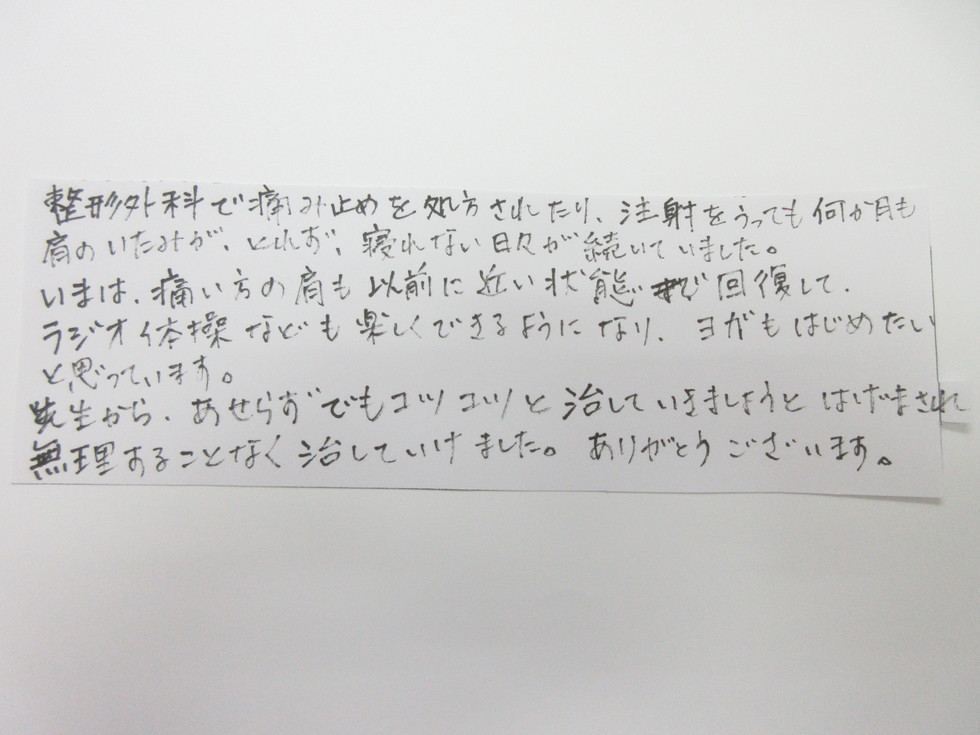 整形外科で痛み止めを処方されたり、注射をうっても何か月も
肩のいたみが、とれず、寝れない日々が続いていました。
いまは、痛い方の肩も以前に近い状態まで回復して、
ラジオ体操なども楽しくできるようになり、ヨガもはじめたい
と思っています。
先生から、あせらずでもコツコツと治していきましょうとはげまされ
無理することなく治していけました。ありがとうございます。